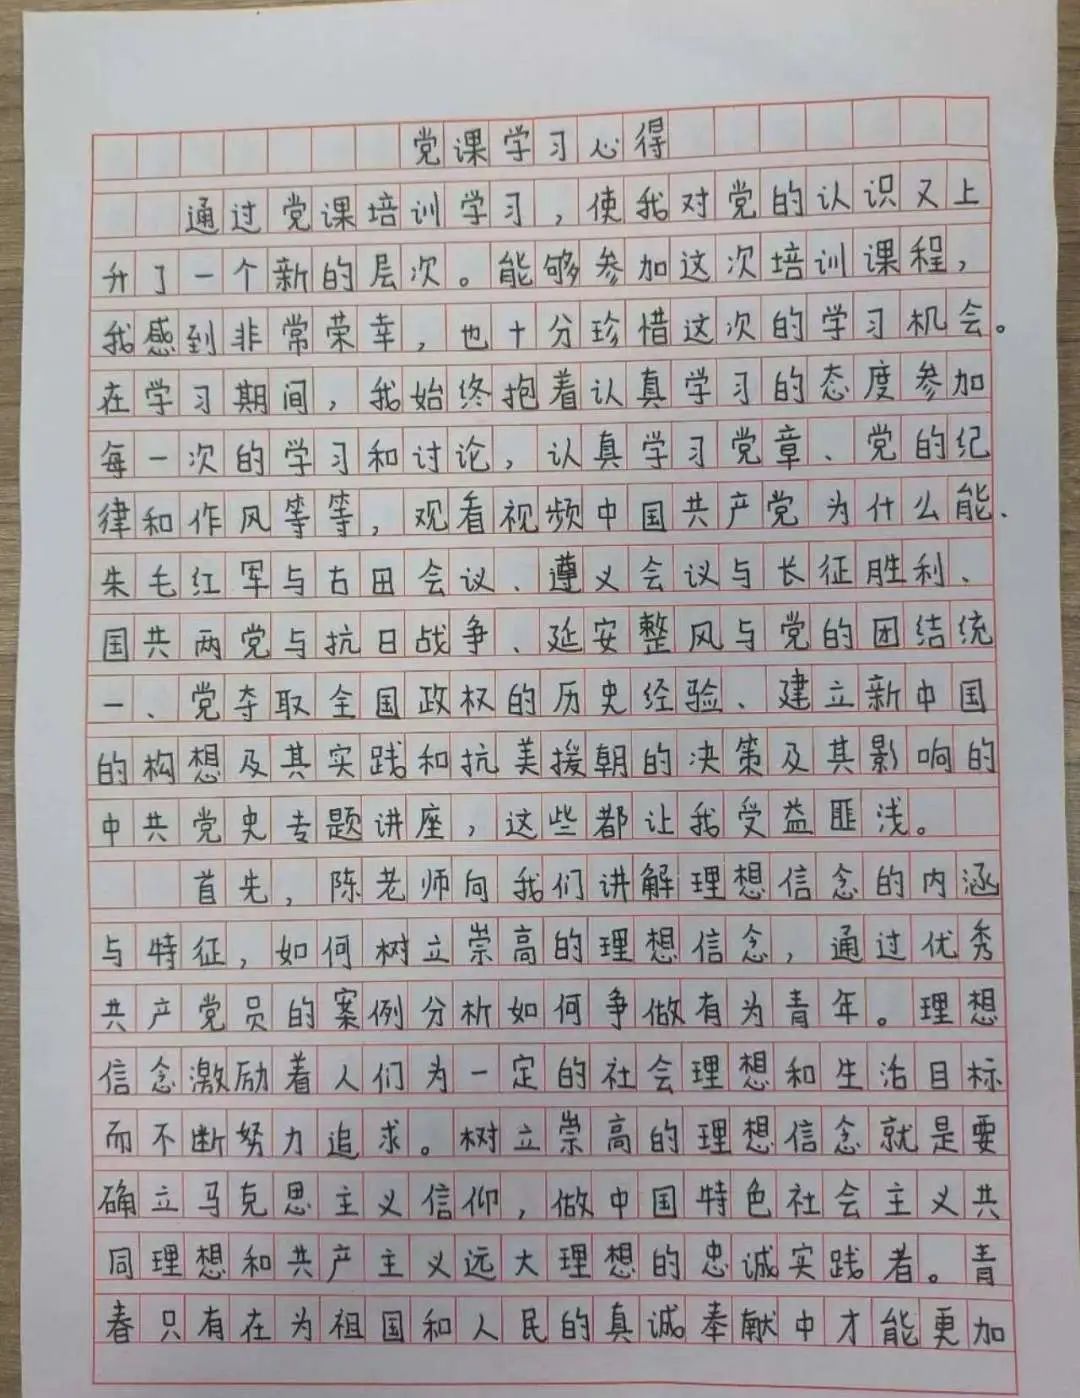 党课学习心得
通过党课培训学习，使我对党的认识又上
升了一个新的层次。能够参加这次培训课程，
我感到非常荣幸，也十分珍惜这次的学习机会。
在学习期间，我始终抱着认真学习的态度参加
每一次的学习和讨论，认真学习党章、党的纪
律和作风等等，观看视频中国共产党为什么能、
朱毛红军与古田会议、遵义会议与长征胜利、
国共两党与抗日战争、延安整风与党的团结统
一、党夺取全国政权的历史经验、建立新中国
的构想及其实践和抗美援朝的决策及其影响的
中共党史专题讲座，这些都让我受益匪浅。
首先，陈老师向我们讲解理想信念的内涵
与特征，如何树立崇高的理想信念，通过优秀
共产党员的案例分析如何争做有为青年。理想
信念激励着人们为一定的社会理想和生活目标
而不断努力追求。树立崇高的理想信念就是要
确立马克思主义信仰，做中国特色社会主义共
同理想和共产主义远大理想的忠诚实践者。青
春只有在为祖国和人民的真诚奉献中才能更加